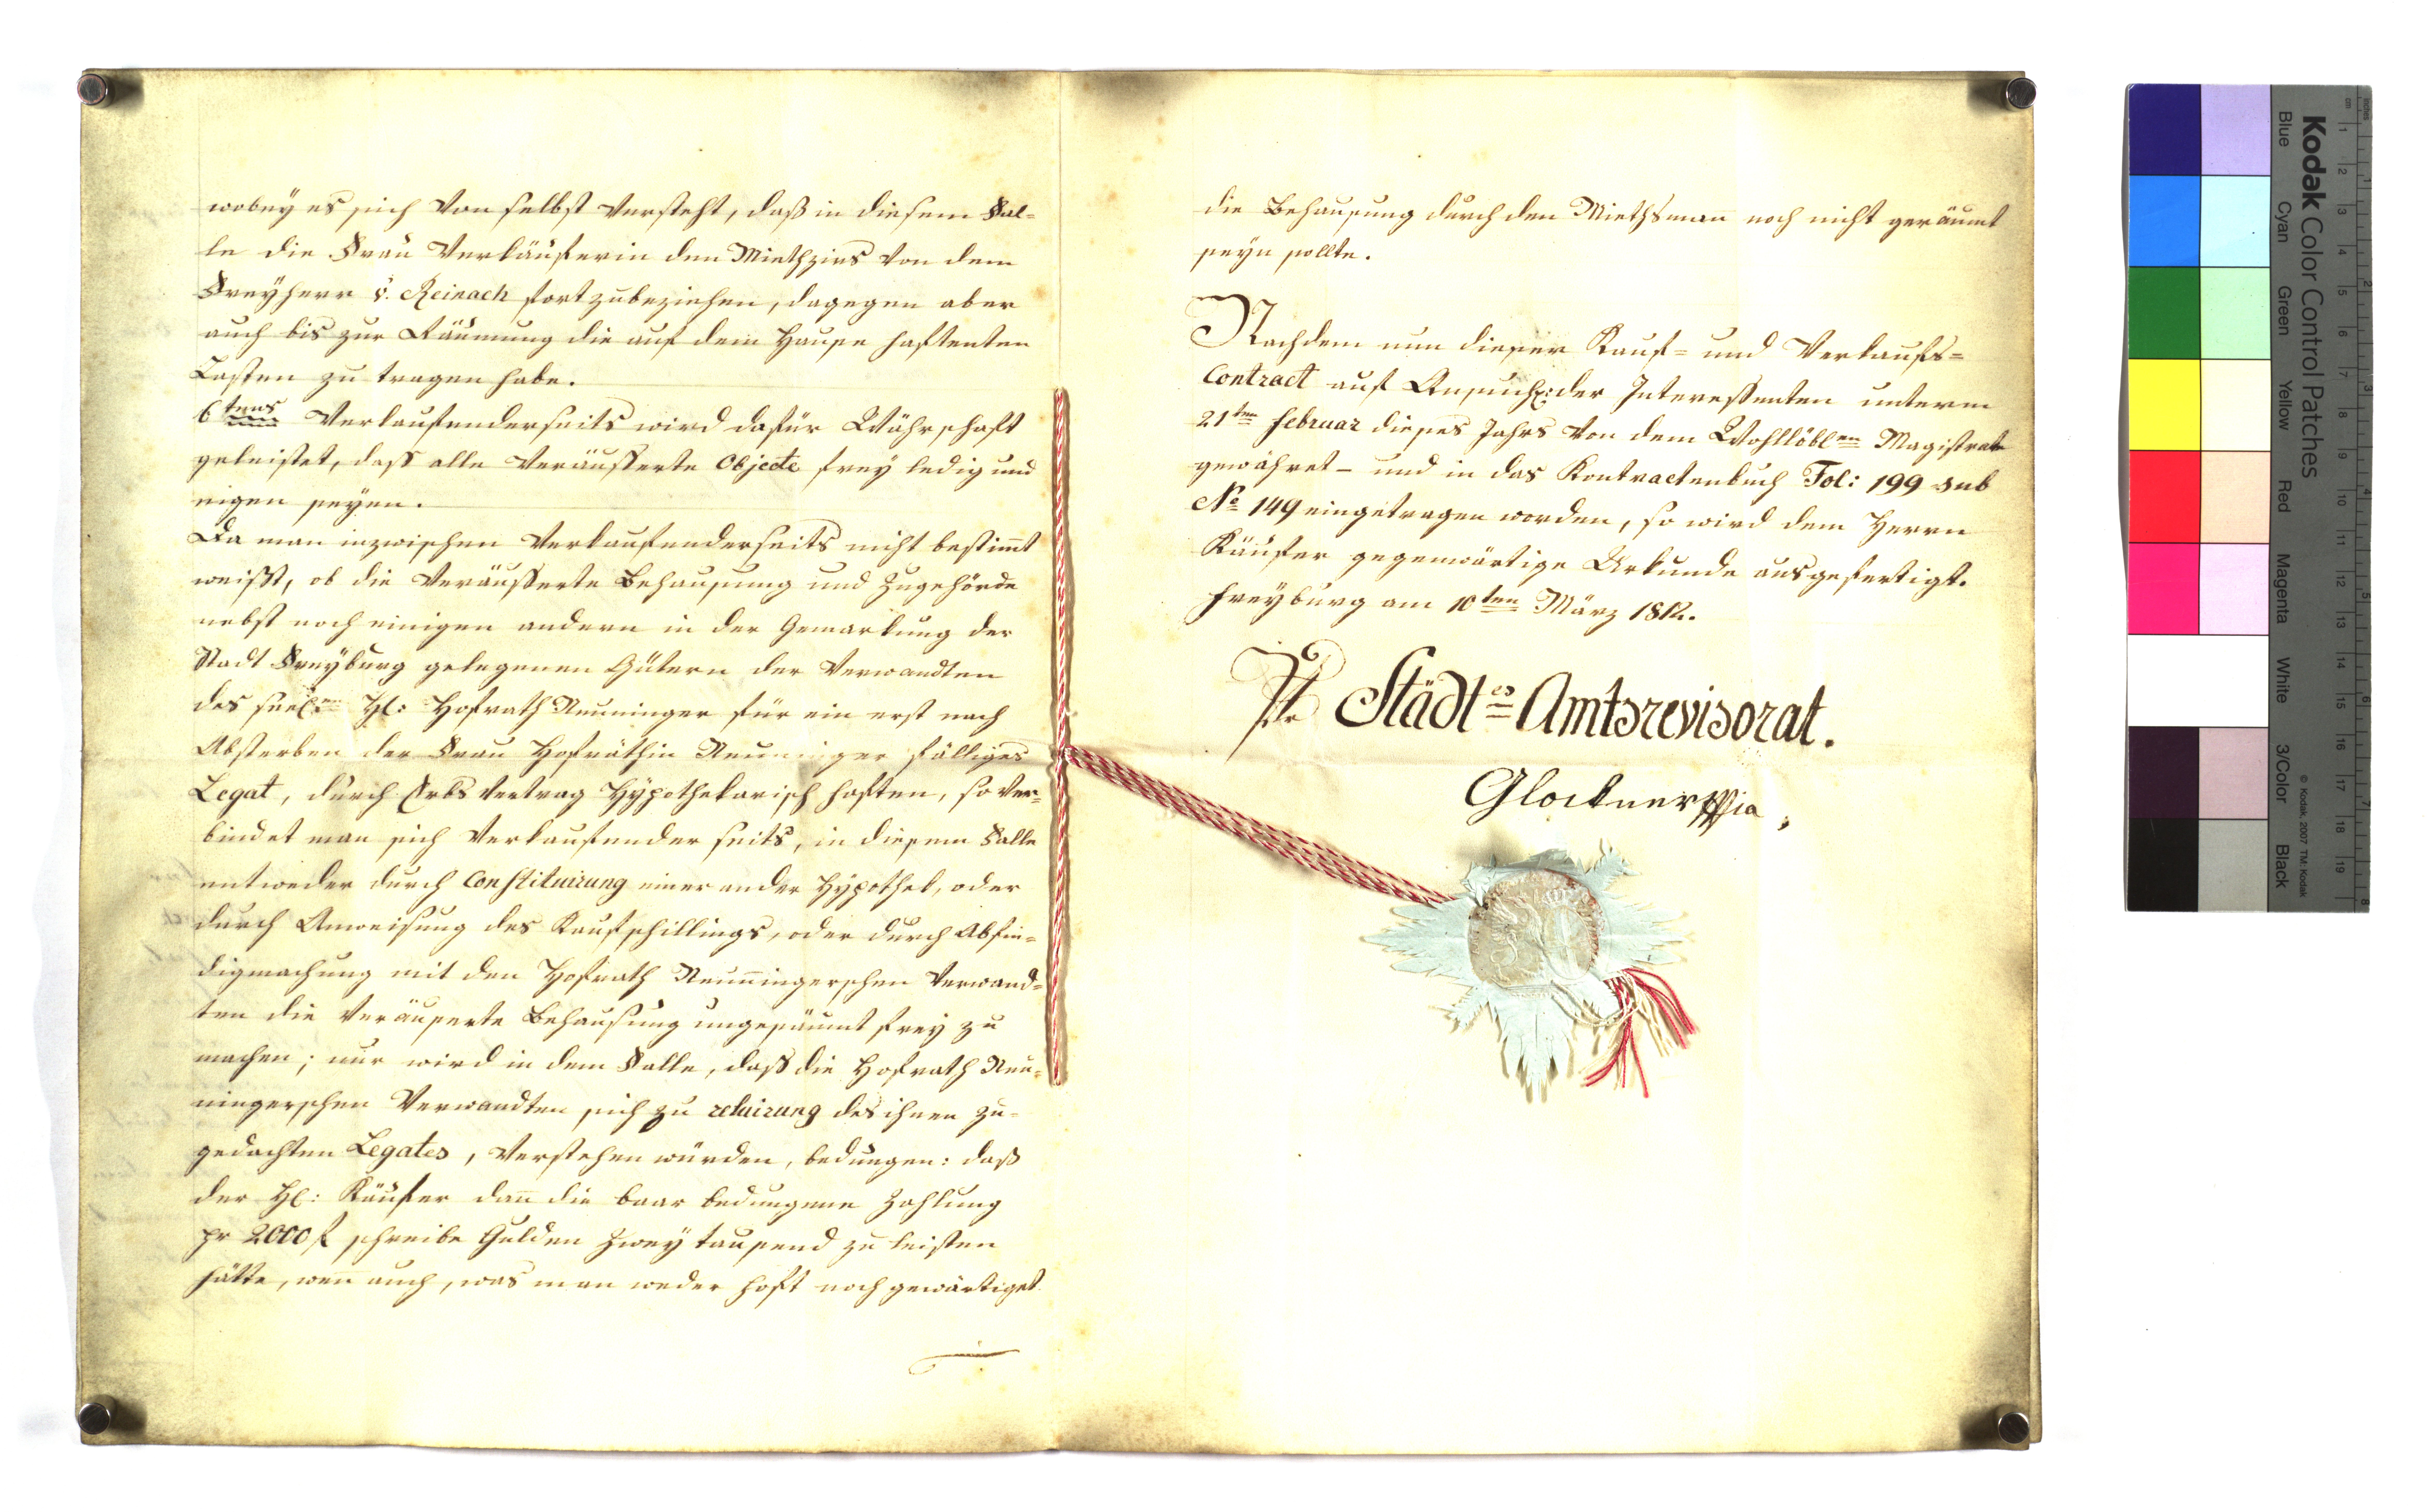 wobey es sich von selbst versteht, daß in diesem Fal-
le die Frau Verkäuferin den Miethzins von dem
Freyherr v. Reinach fortzubeziehen, dagegen aber
auch bis zur Räumung die auf dem Hause haftenten
Lasten zu tragen habe.
6tens Verkaufenderseits wird dafür Währschaft
geleistet, dass alle veräusserte Objecte frey ledig und
eigen seyen.
Da man inzwischen Verkaufenderseits nicht bestimt
weißt, ob die veräusserte Behausung und Zugehörde
nebst noch einigen andern in der Gemarkung der
Stadt Freyburg gelegenen Gütern der Verwandten
des seel:en H: Hofrath Neuninger für ein erst nach
Absterben der Frau Hofräthin Neuninger fälliges
Legat, durch Erbsvertrag Hypothekarisch haften, so ver-
bindet man sich Verkaufender seits, in diesem Falle
entweder durch Constituirung einer ander Hypothek, oder
durch Anweisung des Kaufschillings, oder durch Abfin-
digmachung mit den Hofrath Neuningerschen Verwand-
ten die veräuserte Behausung ungesäumt frey zu
machen; nur wird in dem Falle, daß die Hofrath Neu-
ningerschen Verwandten sich zu reluirung des ihnen zu-
gedachten Legates, verstehen würden, bedungen: daß
der H: Käufer dan die baar bedungene Zahlung
pr 2000 f schreibe Gulden Zwey tausend zu leisten
hätte, wen auch, was man weder hoft noch gewärtiget
die Behausung durch den Miethsman noch nicht geräumt
seyn sollte.
Nachdem nun dieser Kauf- und Verkaufs-
Contract auf Ansuch: der Interessenten unterm
21ten Februar dieses Jahrs von dem Wohllöblen Magistrat
gewähret - und in das Kontractenbuch Fol: 199 sub
No 149 eingetragen worden, so wird dem Herrn
Käufer gegenwärtige Urkunde ausgefertigt.
Freyburg am 10ten März 1812.
Städtes Amtsrevisorat.
Glockner
Kodak Color Control Patches
Blue Cyan Green Yellow Red Magenta White 3/Color Black
© Kodak, 2007 TM: Kodak
cm 1 2 3 4 5 6 7 8 9 10 11 12 13 14 15 16 17 18 19
inches 1 2 3 4 5 6 7 8